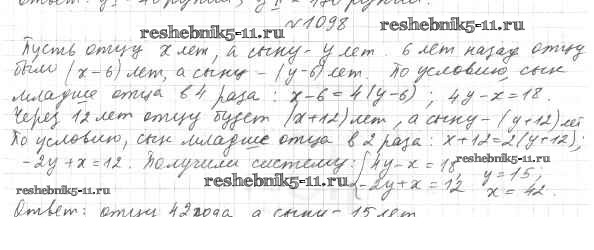 Ответ: у
№1098
reshebnik5-11.ru
Пусть отцу x лет, а сыну - y лет. 6 лет назад отцу
было (x-6) лет, а сыну - (y-6) лет. По условию, сын
младше отца в 4 раза: x-6=4(y-6); 4y-x=18.
Через 12 лет отцу будет (x+12) лет, а сыну - (y+12) лет
По условию, сын младше отца в 2 раза: x+12=2(y+12);
-2y+x=12. Получили систему: { 4y-x=18, y=15,
reshebnik5-11.ru
-2y+x=12, x=42.
reshebnik5-11.ru
reshebnik5-11.ru
Ответ: отцу 42 года, а сыну - 15 лет